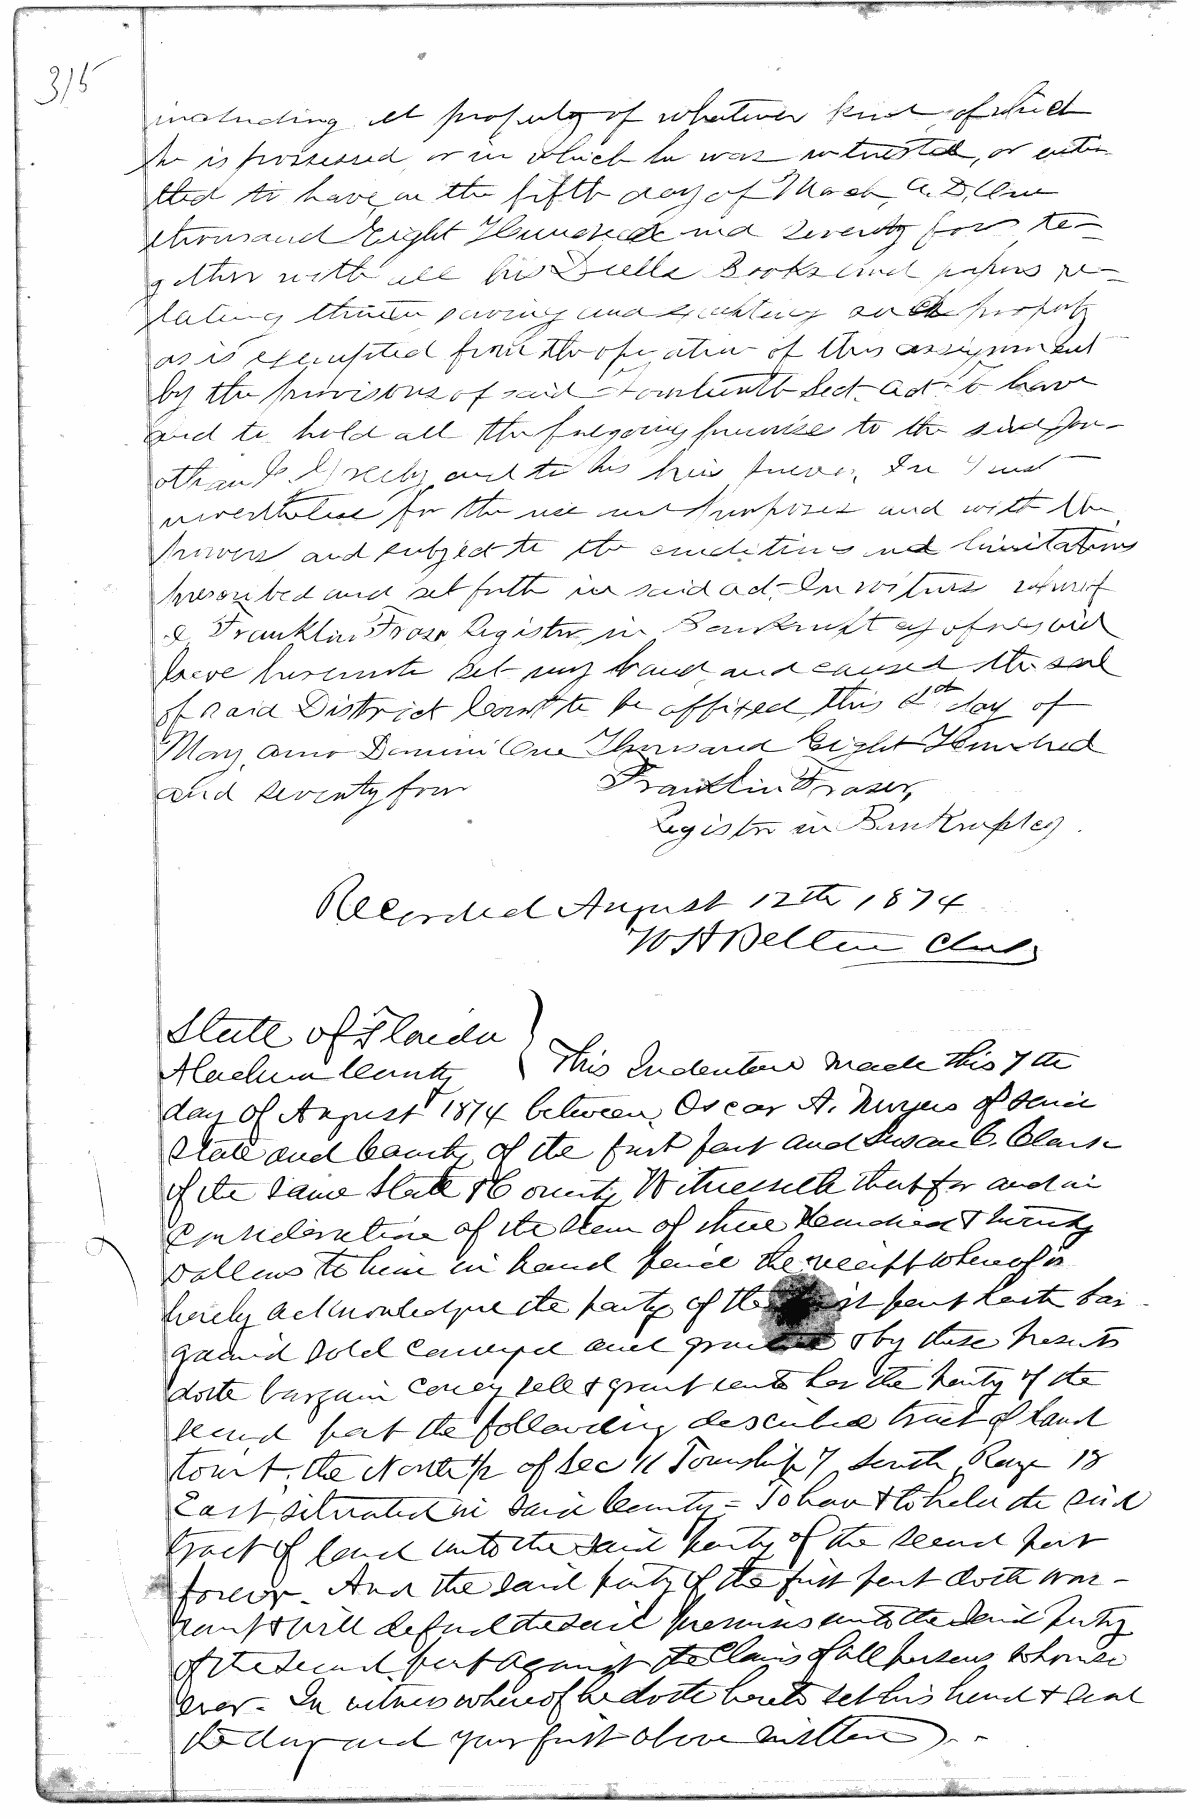 315
including all property of whatever kind, of which
he is possessed, or in which he was interested, or enti-
tled to have, on the fifth day of March, A.D. One
thousand Eight Hundred and Seventy four to-
gether with all his Books and papers re-
lating thereto saving and excepting such property
as is exempted from the operation of this assignment
by the provisions of said Fourteenth Sect. Act. To have
and to hold all the foregoing premises to the said Jon-
athan and to his heirs forever, In Trust
nevertheless for the use and purposes and with the
powers and subject to the conditions and limitations
prescribed and set forth in said act. In witness whereof
I Franklin Fraser, Register in Bankruptcy aforesaid
have hereunto set my hand and caused the seal
of said District Court to be affixed, this day of
May, anno Domini One Thousand Eight Hundred
and seventy four Franklin Fraser,
Register in Bankruptcy.
Recorded August 12th 1874
W H Belton Clerk
State of Florida
Alachua County } This Indenture made this 7th
day of August 1874 between Oscar A. Myers of said
State and County of the first part and Susan C. Clark
of the same State & County Witnesseth that for and in
consideration of the Sum of three Hundred & twenty
Dollars to him in hand paid the receipt whereof is
hereby acknowledged the party of the first part hath bar-
gained sold conveyed and granted & by these presents
doth bargain convey sell & grant unto her the party of the
second part the following described tract of land
towit; the North ½ of Sec 11 Township 7 South Range 18
East, situated in said County = To have & to hold the said
tract of land unto the said party of the second part
forever. And the said party of the first part doth war-
rant & will defend the said premises unto the said party
of the second part against the claims of all persons whomso
ever. In witness whereof he doth hereto set his hand & seal
the day and year first above written